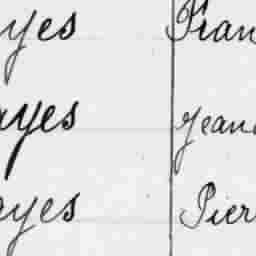 ayes Fran
ayes Jean
ayes Pier